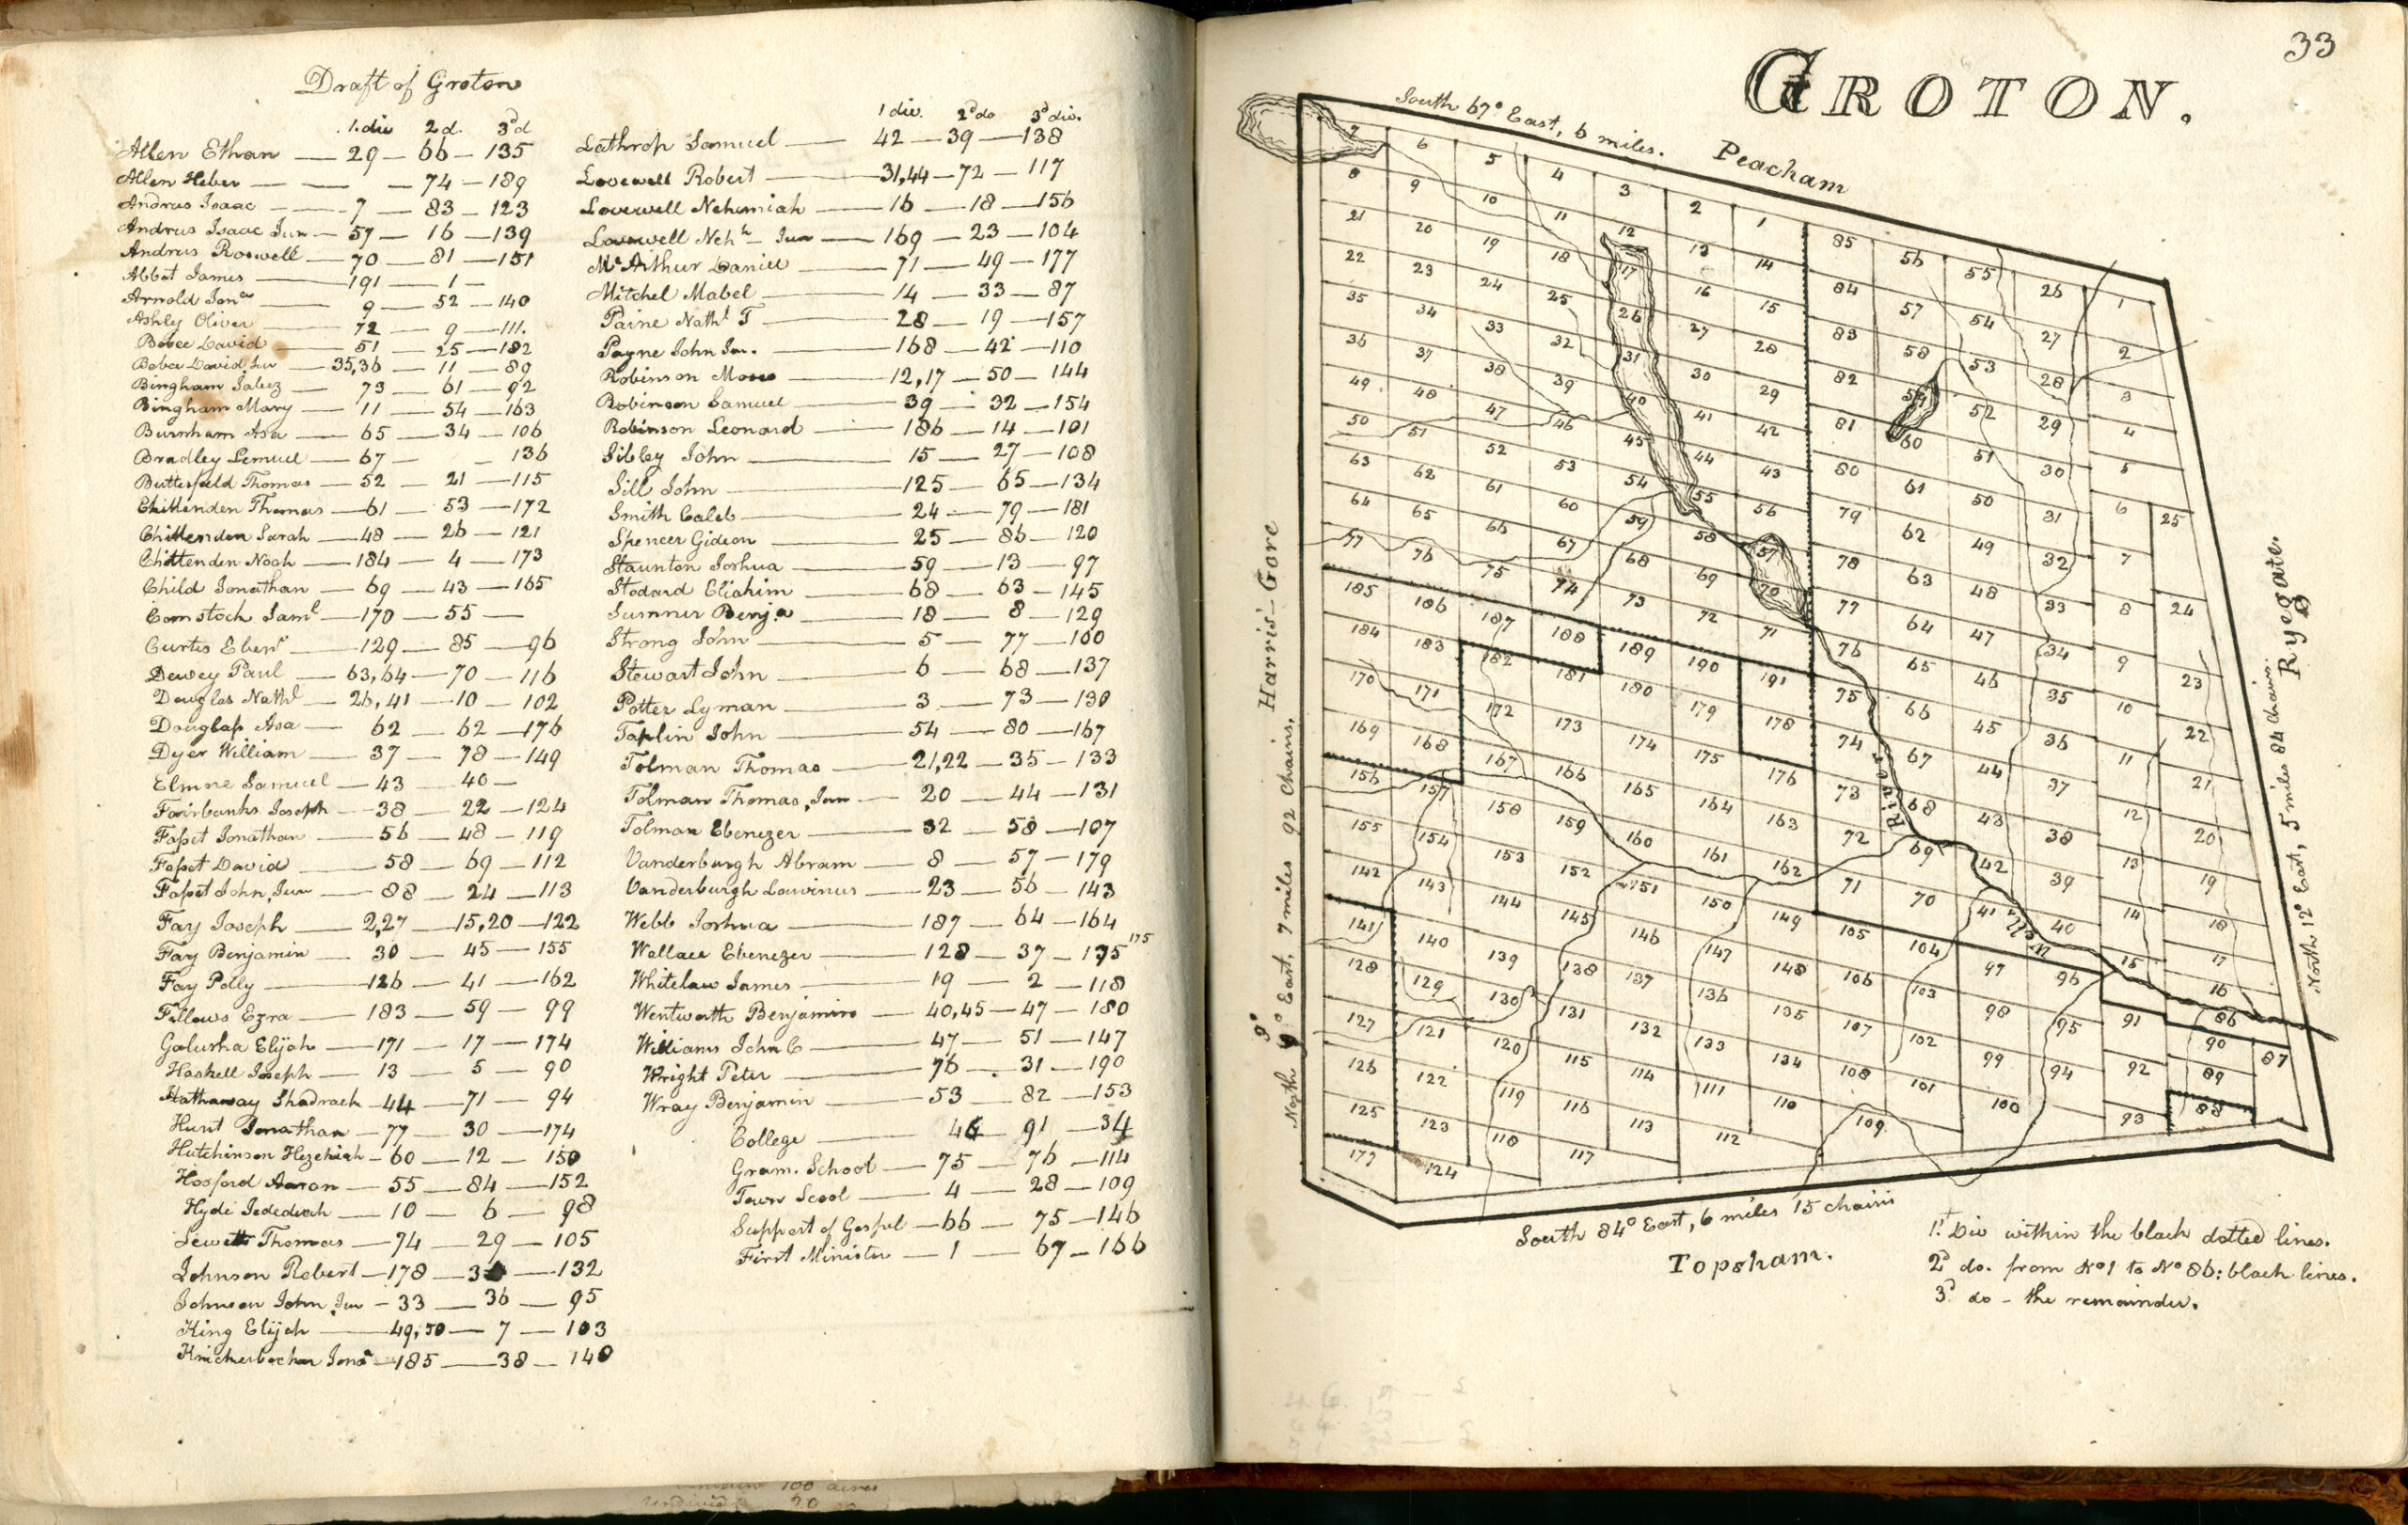 Draft of Groton
1.div 2d. 3dd
Allen Ethan — 29 — 66 — 135
Allen Heber — — — 74 — 189
Andrus Isaac — 7 — 83 — 123
Andrus Isaac Jun — 57 — 16 — 139
Andrus Roswell — 70 — 81 — 151
Abbot James — 191 — 1 —
Arnold Jona — 9 — 52 — 140
Ashly Oliver — 72 — 9 — 111.
Bebee David — 51 — 25 — 182
Bebee David, Jur — 35,36 — 11 — 89
Bingham Jabez — 73 — 61 — 92
Bingham Mary — 11 — 54 — 163
Burnham Asa — 65 — 34 — 106
Bradley Lemuel — 67 — — 136
Butterfield Thomas — 52 — 21 — 115
Chittenden Thomas — 61 — 53 — 172
Chittenden Sarah — 48 — 26 — 121
Chittenden Noah — 184 — 4 — 173
Child Jonathan — 69 — 43 — 165
Comstock Saml — 170 — 55 —
Curtis Ebenr — 129 — 85 — 96
Dewey Paul — 63,64 — 70 — 116
Douglas Nathl — 26,41 — 10 — 102
Douglass Asa — 62 — 62 — 176
Dyer William — 37 — 78 — 149
Elmne Samuel — 43 — 40 —
Fairbanks Joseph — 38 — 22 — 124
Fasset Jonathan — 56 — 48 — 119
Fasset David — 58 — 69 — 112
Fasset John, Jun — 88 — 24 — 113
Fay Joseph — 2,27 — 15,20 — 122
Fay Benjamin — 30 — 45 — 155
Fay Polly — 126 — 41 — 162
Fellows Ezra — 183 — 59 — 99
Galusha Elijah — 171 — 17 — 174
Haskell Joseph — 13 — 5 — 90
Hathaway Shadrach — 44 — 71 — 94
Hunt Jonathan — 77 — 30 — 174
Hutchinson Hezekiah — 60 — 12 — 150
Hosford Aaron — 55 — 84 — 152
Hyde Jedediah — 10 — 6 — 98
Jewett Thomas — 74 — 29 — 105
Johnson Robert — 178 — 3 — 132
Johnson John, Jun — 33 — 36 — 95
King Elijah — 49,50 — 7 — 103
Knickerbocker Jona — 185 — 38 — 148
1 div. 2d do 3d div.
Lathrop Samuel — 42 — 39 — 138
Lovewell Robert — 31,44 — 72 — 117
Lovewell Nehemiah — 16 — 18 — 156
Lovewell Nehh Jun — 169 — 23 — 104
Mc Arthur Daniel — 71 — 49 — 177
Mitchel Mabel — 14 — 33 — 87
Paine Nathl T — 28 — 19 — 157
Payne John Jur. — 168 — 42 — 110
Robinson Moses — 12,17 — 50 — 144
Robinson Samuel — 39 — 32 — 154
Robinson Leonard — 186 — 14 — 101
Sibley John — 15 — 27 — 108
Sill John — 125 — 65 — 134
Smith Caleb — 24 — 79 — 181
Spencer Gideon — 25 — 86 — 120
Staunton Joshua — 59 — 13 — 97
Stodard Eliakim — 68 — 63 — 145
Sumner Benja — 18 — 8 — 129
Strong John — 5 — 77 — 160
Stewart John — 6 — 68 — 137
Potter Lyman — 3 — 73 — 130
Taplin John — 54 — 80 — 167
Tolman Thomas — 21,22 — 35 — 133
Tolman Thomas, Jun — 20 — 44 — 131
Tolman Ebenezer — 32 — 58 — 107
Vanderburgh Abram — 8 — 57 — 179
Vanderburgh Lowinus — 23 — 56 — 143
Webb Joshua — 187 — 64 — 164
Wallace Ebenezer — 128 — 37 — 175 175
Whitelaw James — 19 — 2 — 118
Wentworth Benjamin — 40,45 — 47 — 180
Williams John C — 47 — 51 — 147
Wright Peter — 76 — 31 — 190
Wray Benjamin — 53 — 82 — 153
College — 46 — 91 — 34
Gram. School — 75 — 76 — 114
Town Scool — 4 — 28 — 109
Support of Gospel — 66 — 75 — 146
First Minister — 1 — 67 — 166
33
GROTON.
South 67° East, 6 miles.
Peacham
7 6 5 4 3 2 1 85 56 55 26 1
8 9 10 11 12 13 14 84 57 54 27 2
21 20 19 18 17 16 15 83 58 53 28 3
22 23 24 25 26 27 28 82 59 52 29 4
35 34 33 32 31 30 29 81 60 51 30 5
36 37 38 39 40 41 42 80 61 50 31 6 25
49 48 47 46 45 44 43 79 62 49 32 7
50 51 52 53 54 55 56 78 63 48 33 8 24
63 62 61 60 59 58 57 77 64 47 34 9 23
64 65 66 67 68 69 70 76 65 46 35 10 22
77 76 75 74 73 72 71 75 66 45 36 11 21
185 186 187 188 189 190 191 74 67 44 37 12 20
184 183 182 181 180 179 178 73 68 43 38 13 19
170 171 172 173 174 175 176 72 69 42 39 14 18
169 168 167 166 165 164 163 71 70 41 40 15 17
156 157 158 159 160 161 162 105 104 97 96 16
155 154 153 152 151 150 149 106 103 98 95 91 86
142 143 144 145 146 147 148 107 102 99 94 92 90 87
141 140 139 138 137 136 135 108 101 100 93 89
128 129 130 131 132 133 134 109 88
127 121 120 115 114 111 110
126 122 119 116 113 112
125 123 118 117
177 124
Wells
River
Harris' Gore
North 9° East, 7 miles 92 chains.
9°
Ryegate.
North 12° East, 5 miles 84 chains.
South 84° East, 6 miles 15 chains
Topsham.
1st Div within the black dotted lines.
2d do. from No 1 to No 86: black lines.
3d do - the remainder.